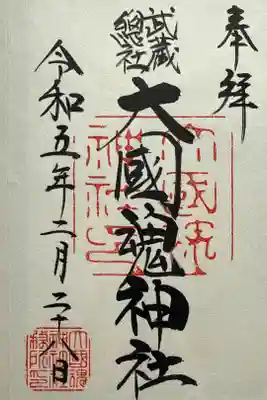 奉拝
武蔵
總社
大國魂神社
令和五年二月二十八日